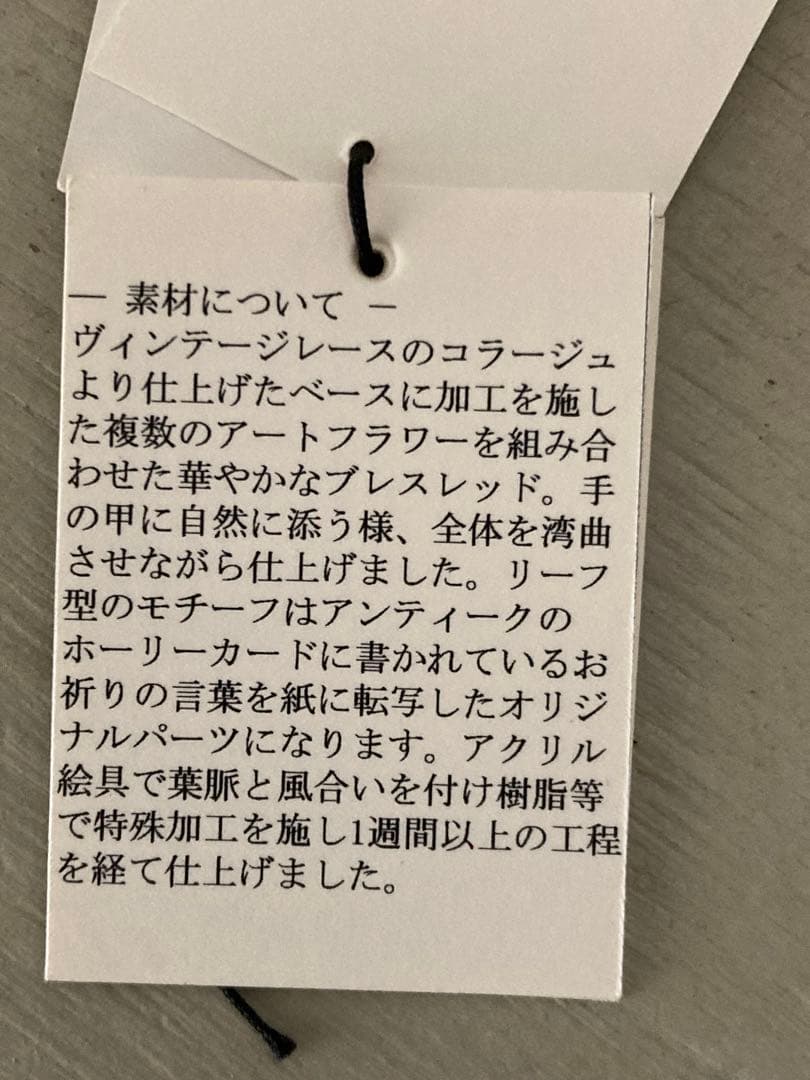 ― 素材について ―
ヴィンテージレースのコラージュ
より仕上げたベースに加工を施し
た複数のアートフラワーを組み合
わせた華やかなブレスレッド。手
の甲に自然に添う様、全体を湾曲
させながら仕上げました。リーフ
型のモチーフはアンティークの
ホーリーカードに書かれているお
祈りの言葉を紙に転写したオリジ
ナルパーツになります。アクリル
絵具で葉脈と風合いを付け樹脂等
で特殊加工を施し1週間以上の工程
を経て仕上げました。